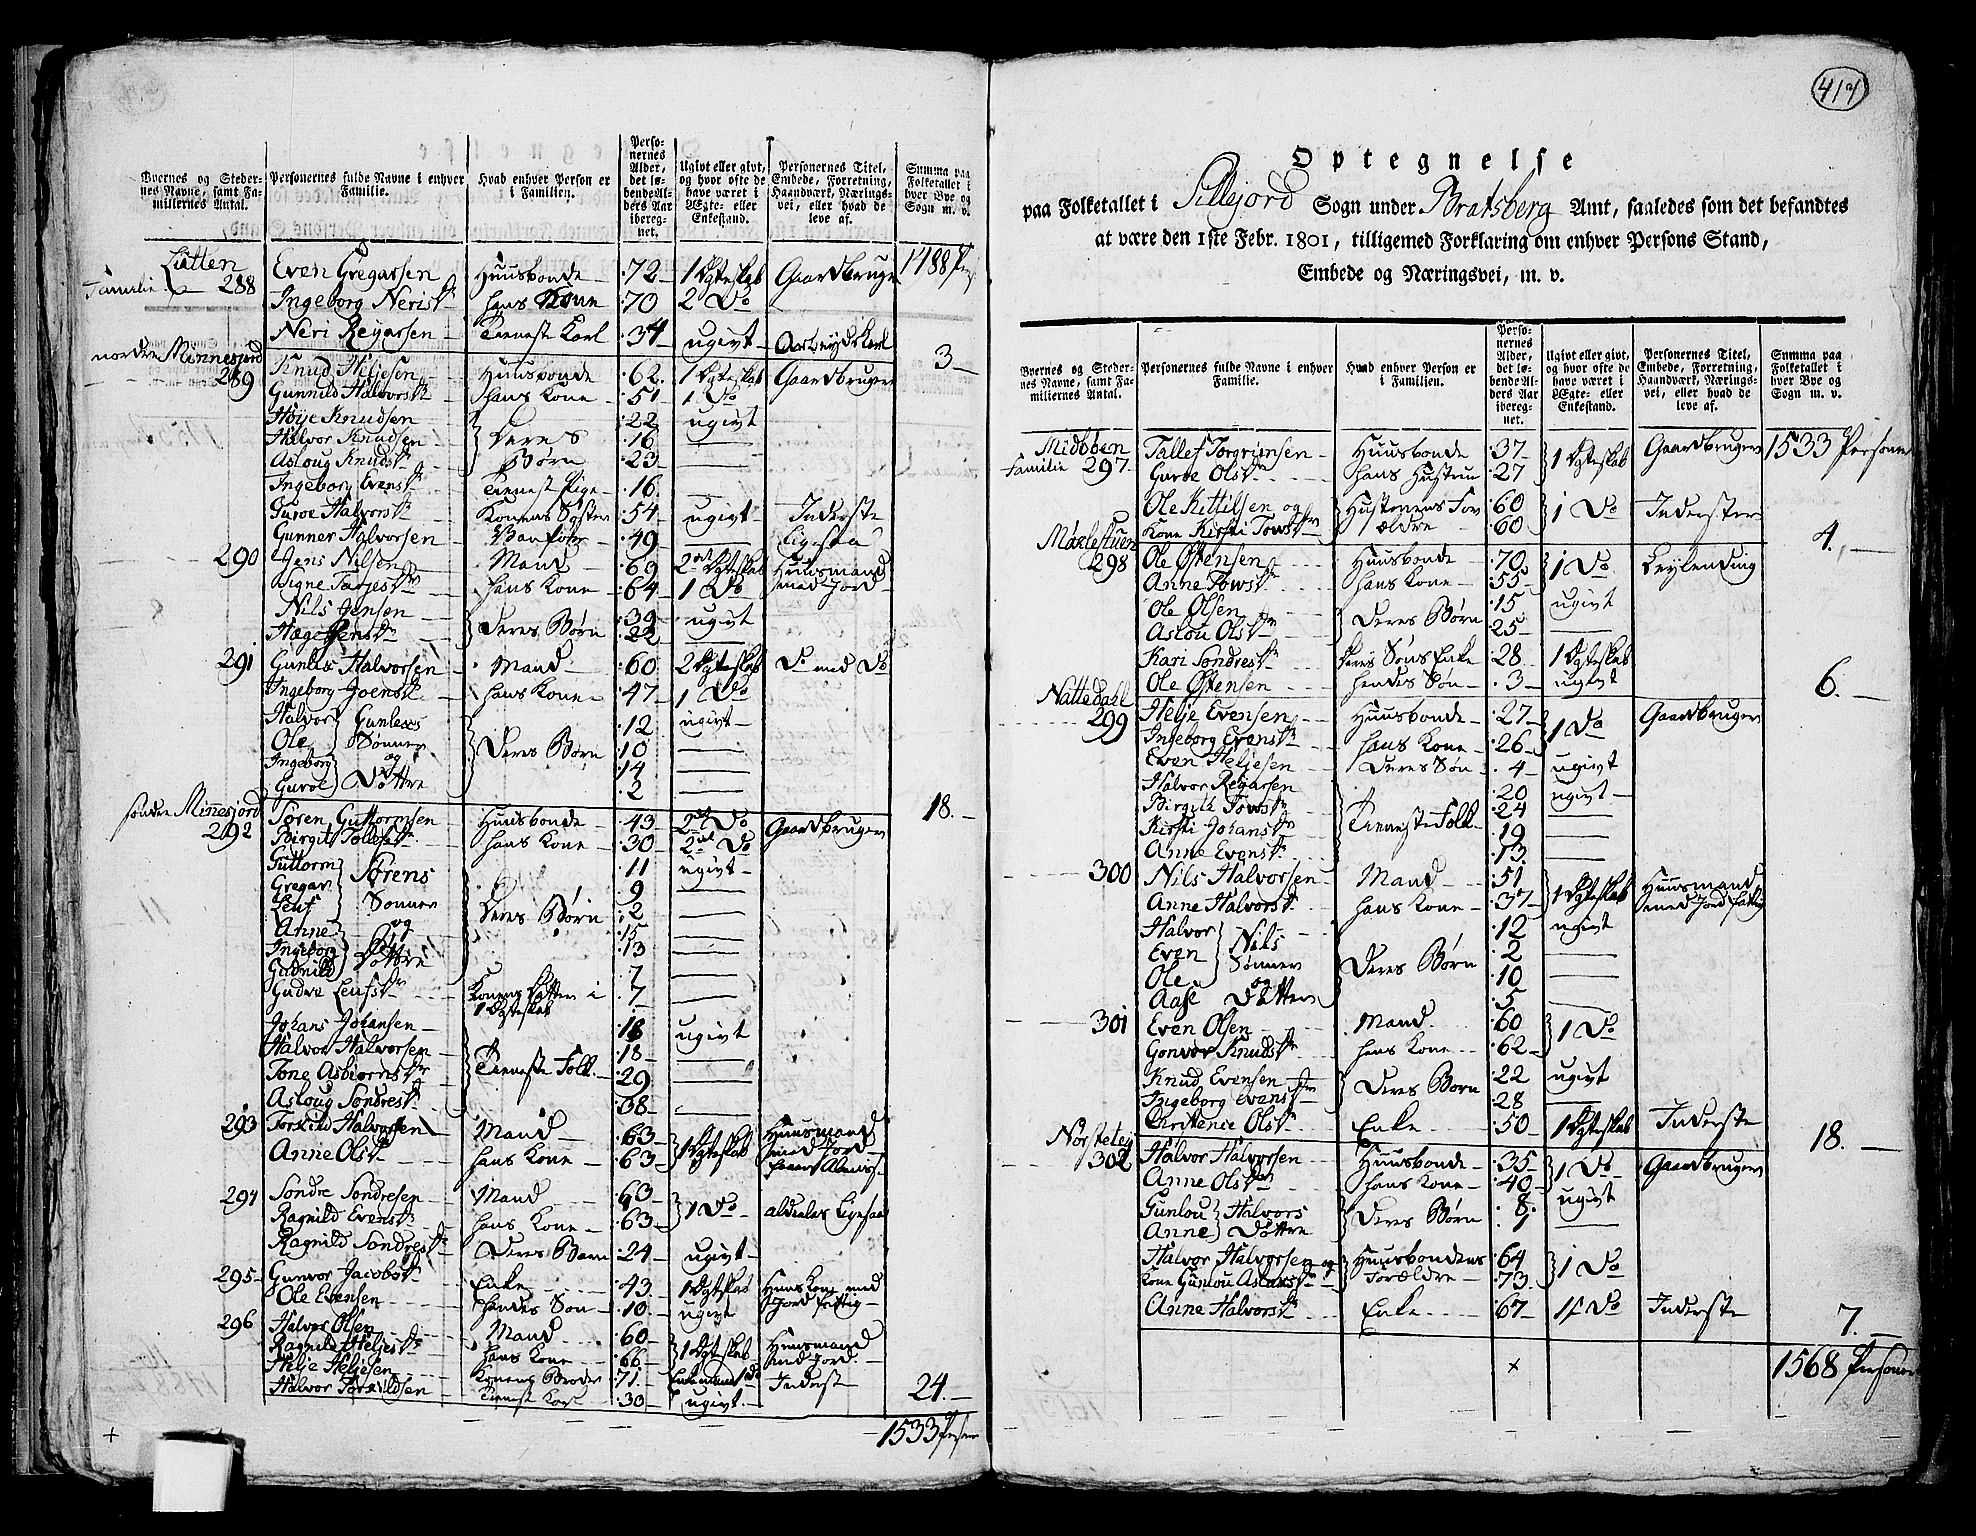 417
Byernes og Steder-
nes Navne, samt Fa-
milliernes Antal.
Personernes fulde Navne i enhver
Familie.
Hvad enhver Person er
i Familien.
Perso-
nernes
Alder,
det lø-
bende Al-
ders Aar
ibereg-
net.
Ugivt eller givt,
og hvor ofte de
have været i
Ægte- eller
Enkestand.
Personernes Titel,
Embede, Forretning,
Handværk, Nærings-
vei, eller hvad de
leve af.
Summa paa
Folketallet i
hver Bye og
Sogn m. v.
Lutten Even Gregarsen Huusbonde 72 1 Ægteskab Gaardbruger 1488
Familie 288 Ingeborg Nerisdr hans Kone 70 2 Do
Neri Reyarsen Tieneste Karl 34 ugivt Aarbeydskarl 3
norden Minnesjord
289 Knud Heljesen Huusbonde 62 1 Ægteskab Gaardbruger
Gunnild Halvorsdr hans Kone 51 1 Do
Høye Knudsen 22 ugivt
Halvor Knudsen Deres 16
Asloug Knudsdr Børn 23
Ingeborg Evensdr Tieneste Pige 16
Guroe Halvorsdr Konens Søster 54 ugivt Inderste
Gunner Halvorsen 49
290 Jens Nilsen Mand 69 2 Ægteskab Huusmand
Signe Tarjesdr hans Kone 64 1 Do med Jord
Nils Jensen Deres Børn 39 ugivt
Hæge Jensdr 22
291 Gunlex Halvorsen Mand 60 2 Ægteskab Do med Do
Ingeborg Joensdr hans Kone 47 1 Do
Halvor Gunlexs 12 ugivt
Ole Sønner Deres Børn 10
Ingeborg og 14
Guroe Døttre 2 18
sønden Minesjord
292 Søren Guttormsen Huusbonde 43 2 Do Gaardbruger
Birgit Tollefsdr hans Kone 30 2 Do
Guttorm Sørens 11 ugivt
Gregar 9
Leuf Sønner Deres Børn 2
Anne og 15
Ingeborg Døttre 13
Gudnild 7
Gudve Leufsdr Konens Datter i 7
1 Ægteskab
Johans Johansen 18 ugivt
Halvor Halvorsen Tieneste Folk 18
Tone Asbiørnsdr 29
Asloug Sondresdr 38
293 Torkild Halvorsen Mand 63 1 Ægteskab Huusmand
Anne Olsdr hans Kone 63 med Jord
294 Sondre Sondresen Mand 63 1 Do
Ragnild Evensdr hans Kone 63
Ragnild Sondresdr Deres Barn 24 ugivt
295 Gunvor Jacobsdr Enke 43 1 Ægteskab Huuskone med
Ole Evensen Hendes Søn 10 ugivt Jord fattig
296 Halvor Olsen Mand 60 1 Ægteskab Huusmand
Ragnild Heljesdr hans Kone 66 med Jord
Helje Heljesen Konens Broder 71 Inderst
Halvor Torkildsen Tieneste Karl 30 ugivt 24
1533
Optegnelse
paa Folketallet i Sillejord Sogn under Bratsberg Amt, saaledes som det befandtes
at være den 1ste Febr. 1801, tilligemed Forklaring om enhver Persons Stand,
Embede og Næringsvei, m. v.
Byernes og Steder-
nes Navne, samt Fa-
miliernes Antal.
Personernes fulde Navne i enhver
Familie.
Hvad enhver Person er
i Familien.
Perso-
nernes
Alder,
det lø-
bende Al-
ders Aar
ibereg-
net.
Ugivt eller givt,
og hvor ofte de
have været i
Ægte- eller
Enkestand.
Personernes Titel,
Embede, Forretning,
Haandværk, Nærings-
vei, eller hvad de
leve af.
Summa paa
Folketallet i
hver Bye og
Sogn m. v.
Midbøen Tallef Torgrimsen Huusbonde 37 1 Ægteskab Gaardbruger 1533 Personer
Familie 297 Guroe Olsdr hans Hustrue 27
Ole Kittilsen og Hustruens For 60 1 Do Inderster
Kone Kirsti Towsdr ældre 60 4
Moxlestuen Ole Østensen Huusbonde 70 1 Do Leylending
298 Anne Towsdr hans Kone 55
Ole Olsen Deres Børn 15 ugivt
Aslou Olsdr 25
Kari Sondresdr Deres Søns Enke 28 1 Ægteskab
Ole Østensen hendes Søn 3 ugivt 6
Nattedahl Helje Evensen Huusbonde 27 1 Do Gaardbruger
299 Ingeborg Evensdr hans Kone 26
Even Heljesen Deres Søn 4 ugivt
Halvor Reyarsen 20 ugivt
Birgith Towsdr Tieneste Folk 24
Kirsti Johansdr 19
Anne Evensdr 13
300 Nils Halvorsen Mand 51 1 Ægteskab Huusmand
Anne Halvorsdr hans Kone 37 med Jord fattig
Halvor Nils 12 ugivt
Even Sønner Deres Børn 2
Ole og 10
Aase Døtter 5
301 Even Olsen Mand 60 1 Do
Gonvor Knudsdr hans Kone 62
Knud Evensen Deres Børn 22 ugivt
Ingeborg Evensdr 28
Christence Olsdr Enke 50 1 Ægteskab Inderste 18
Norstetej Halvor Halvorsen Huusbonde 35 1 Do Gaardbruger
302 Anne Olsdr hans Kone 40
Gunlou Halvors Deres Børn 8 ugivt
Anne Døttre 1
Halvor Halvorsen og Huusbondens 64 1 Do
Kone Gunlou Aslaksdr Forældre 73
Anne Halvorsdr Enke 67 1 Do Inderste 7
1568 Personer